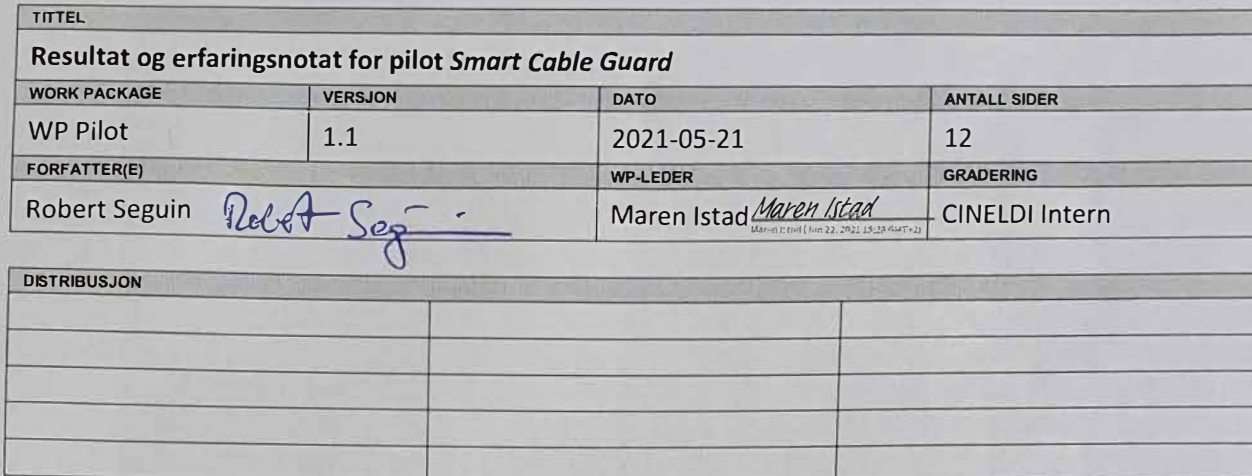 TITTEL
Resultat og erfaringsnotat for pilot Smart Cable Guard
WORK PACKAGE VERSJON DATO ANTALL SIDER
WP Pilot 1.1 2021-05-21 12
FORFATTER(E) WP-LEDER GRADERING
Robert Seguin Robert Seguin Maren Istad Maren Istad CINELDI Intern
Maren Istad (Jun 22, 2021 15:23 GMT+2)
DISTRIBUSJON